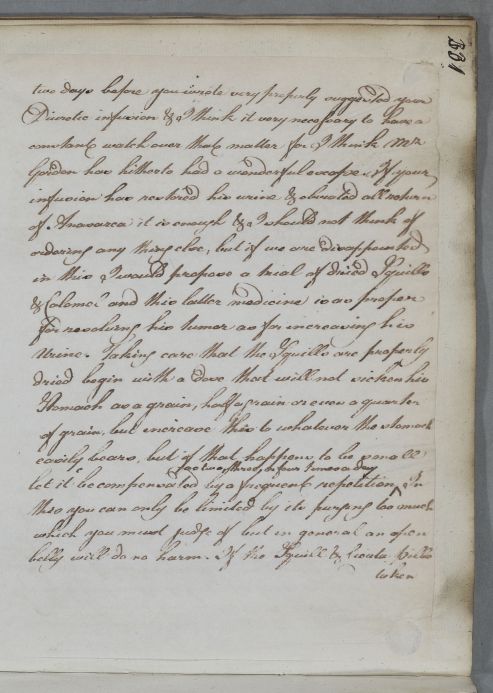 331
two days before you wrote very properly suggested your
Diuretic infusion & I think it very necessary to have a
constant watch over that matter for I think Mr
Gordon has hitherto had a wonderful escape. If your
infusion has restored his urine & obviated all return
of Anasarca it is enough & I should not think of
ordering any thing else, but if we are disappointed
in this I would propose a trial of dried Squills
& Calomel and this latter medicine is as proper
for resolving his tumor as for increasing his
Urine. Taking care that the Squills are properly
dried begin with a dose that will not sicken his
Stomach as a grain, half a grain or even a quarter
of grain, but increase this to whatever the stomach
easily bears, but if that happens to be small
let it be compensated by a frequent repetition ^ In
as two, three or four times a day
this you can only be limited by its purging too much
which you must judge of but in general an open
belly will do no harm. If the Squill & Cicuta Pills
taken